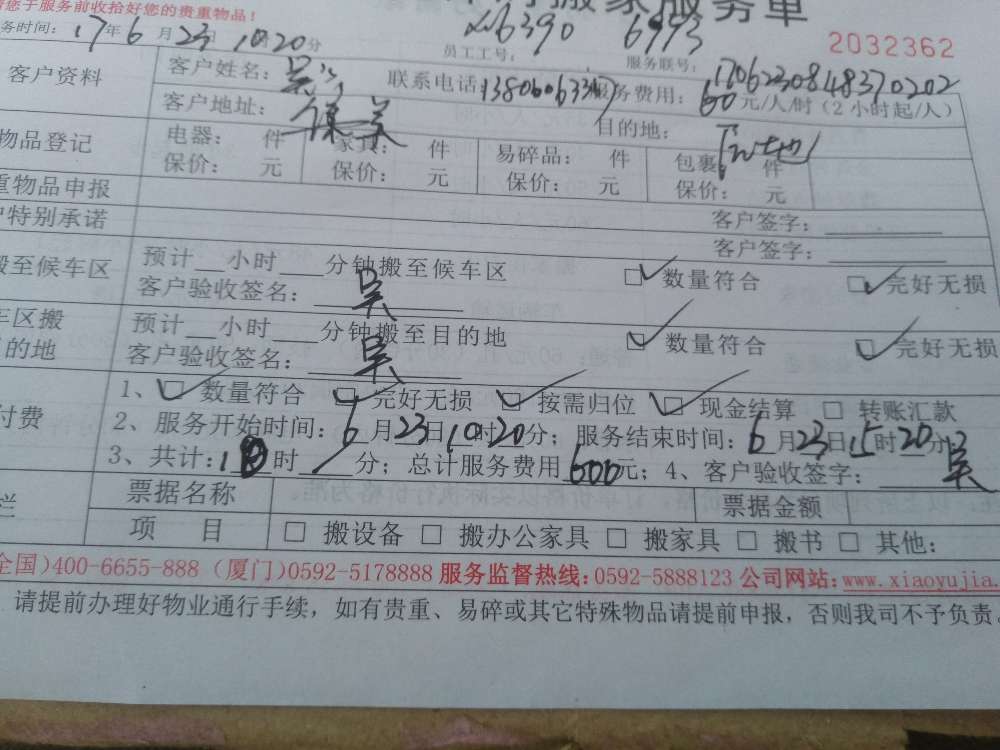 请您于服务前收拾好您的贵重物品！ 搬家服务单
务时间：17年6月23日10时20分 员工工号：xm6390 6993 服务联号：170623084837 0202 2032362
客户资料 客户姓名：吴 联系电话： 服务费用：60元/人/时（2小时起/人）
客户地址： 目的地：
物品登记 电器： 件 家具： 件 易碎品： 件 包裹： 件
保价： 元 保价： 元 保价： 元 保价： 元
重物品申报 客户签字：
特别承诺 客户签字：
搬至候车区 预计 小时 分钟搬至候车区 □✓数量符合 □✓完好无损
客户验收签名：吴
车区搬 预计 小时 分钟搬至目的地 □✓数量符合 □✓完好无损
目的地 客户验收签名：吴
付费 1、□✓数量符合 □✓完好无损 □✓按需归位 □✓现金结算 □转账汇款
2、服务开始时间：6月23日10时20分；服务结束时间：6月23日15时20分
3、共计：10时 分；总计服务费用600元；4、客户验收签字：吴
栏 票据名称 票据金额
项 目 □搬设备 □搬办公家具 □搬家具 □搬书 □其他：
全国)400-6655-888 (厦门)0592-5178888 服务监督热线：0592-5888123 公司网站：www.xiaoyujia.
请提前办理好物业通行手续，如有贵重、易碎或其它特殊物品请提前申报，否则我司不予负责。